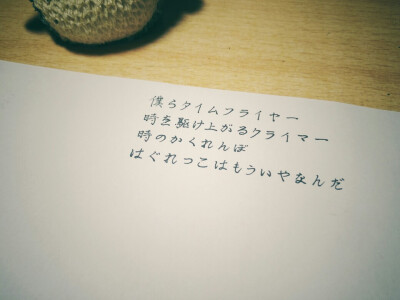 僕らタイムフライヤー
時を駆け上がるクライマー
時のかくれんぼ
はぐれっこはもういやなんだ